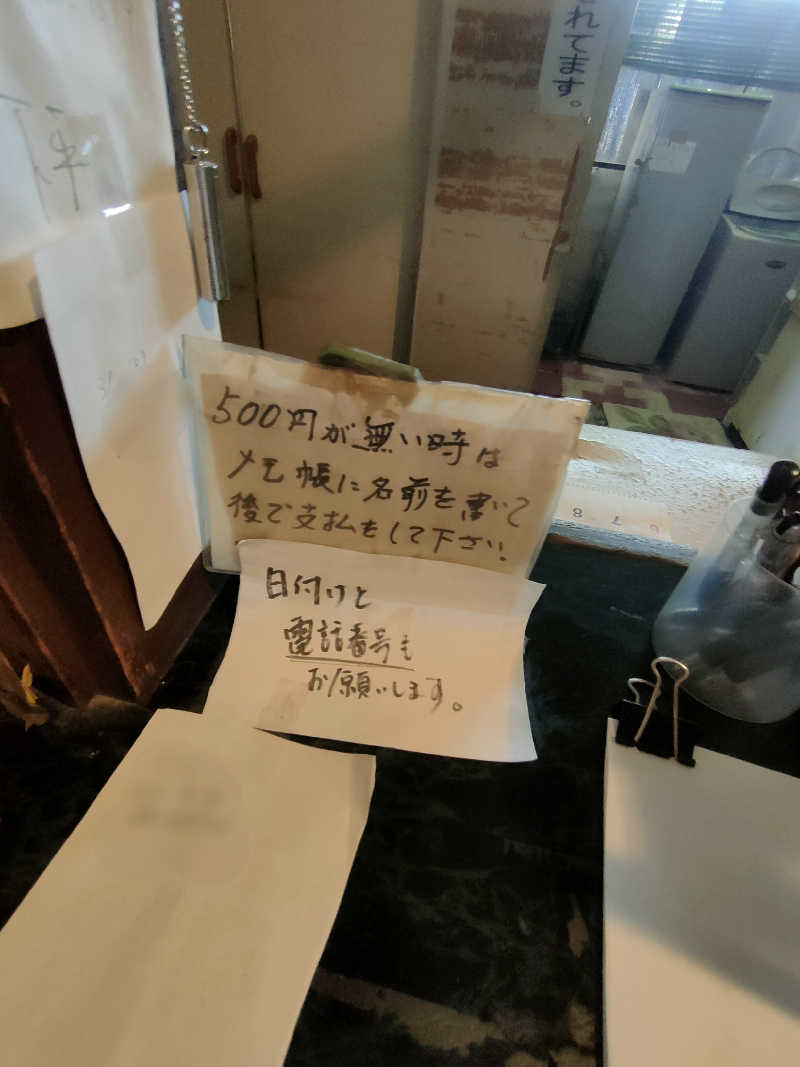 れてます。
500円が無い時は
メモ帳に名前を書いて
後で支払をして下さい!
日付けと
電話番号も
お願いします。
8 7 6